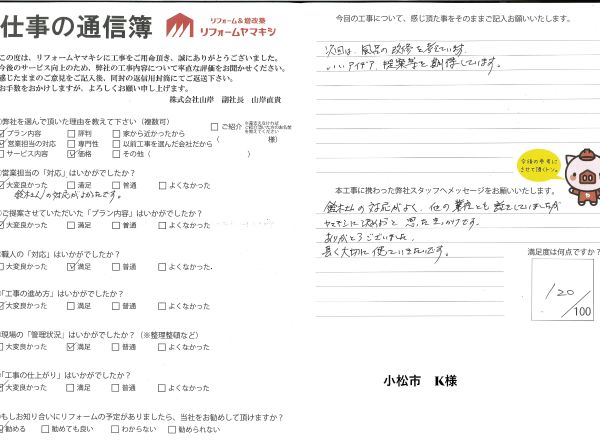 仕事の通信簿
リフォーム&増改築
リフォームヤマキシ
この度は、リフォームヤマキシに工事をご用命頂き、誠にありがとうございました。
今後のサービス向上のため、弊社の工事内容について率直な評価をお聞かせください。
感じたままのご意見をご記入後、同封の返信用封筒にてご返送下さい。
お手数をおかけしますが、よろしくお願い申し上げます。
株式会社山岸 副社長 山岸直貴
弊社を選んで頂いた理由を教えて下さい(複数可)
プラン内容 評判 家から近かったから ご紹介
営業担当の対応 専門性 以前工事を選んだ会社だから ( 様)
サービス内容 価格 その他(
営業担当の「対応」はいかがでしたか?
大変良かった 満足 普通 よくなかった
鈴木さんの対応がよかったです。
ご提案させていただいた「プラン内容」はいかがでしたか?
大変良かった 満足 普通 よくなかった
職人の「対応」はいかがでしたか?
大変良かった 満足 普通 よくなかった
「工事の進め方」はいかがでしたか?
大変良かった 満足 普通 よくなかった
現場の「管理状況」はいかがでしたか?(※整理整頓など)
大変良かった 満足 普通 よくなかった
「工事の仕上がり」はいかがでしたか?
大変良かった 満足 普通 よくなかった
もしお知り合いにリフォームの予定がありましたら、当社をお勧めして頂けますか?
勧める 勧めても良い わからない 勧められない
今回の工事について、感じた事をそのままご記入お願いいたします。
次回は、風呂の改修を考えています。
いいアイデア、提案等を期待しています。
今後の参考に
させて頂くトン。
本工事に携わった弊社スタッフへメッセージをお願いいたします。
鈴木さんの対応がよく、他の業者とも
ヤマキシに決めようと思ったきっかけです。
ありがとうございました。
長く大切に使っていきたいです。
満足度は何点ですか?
120
/100
小松市 K様